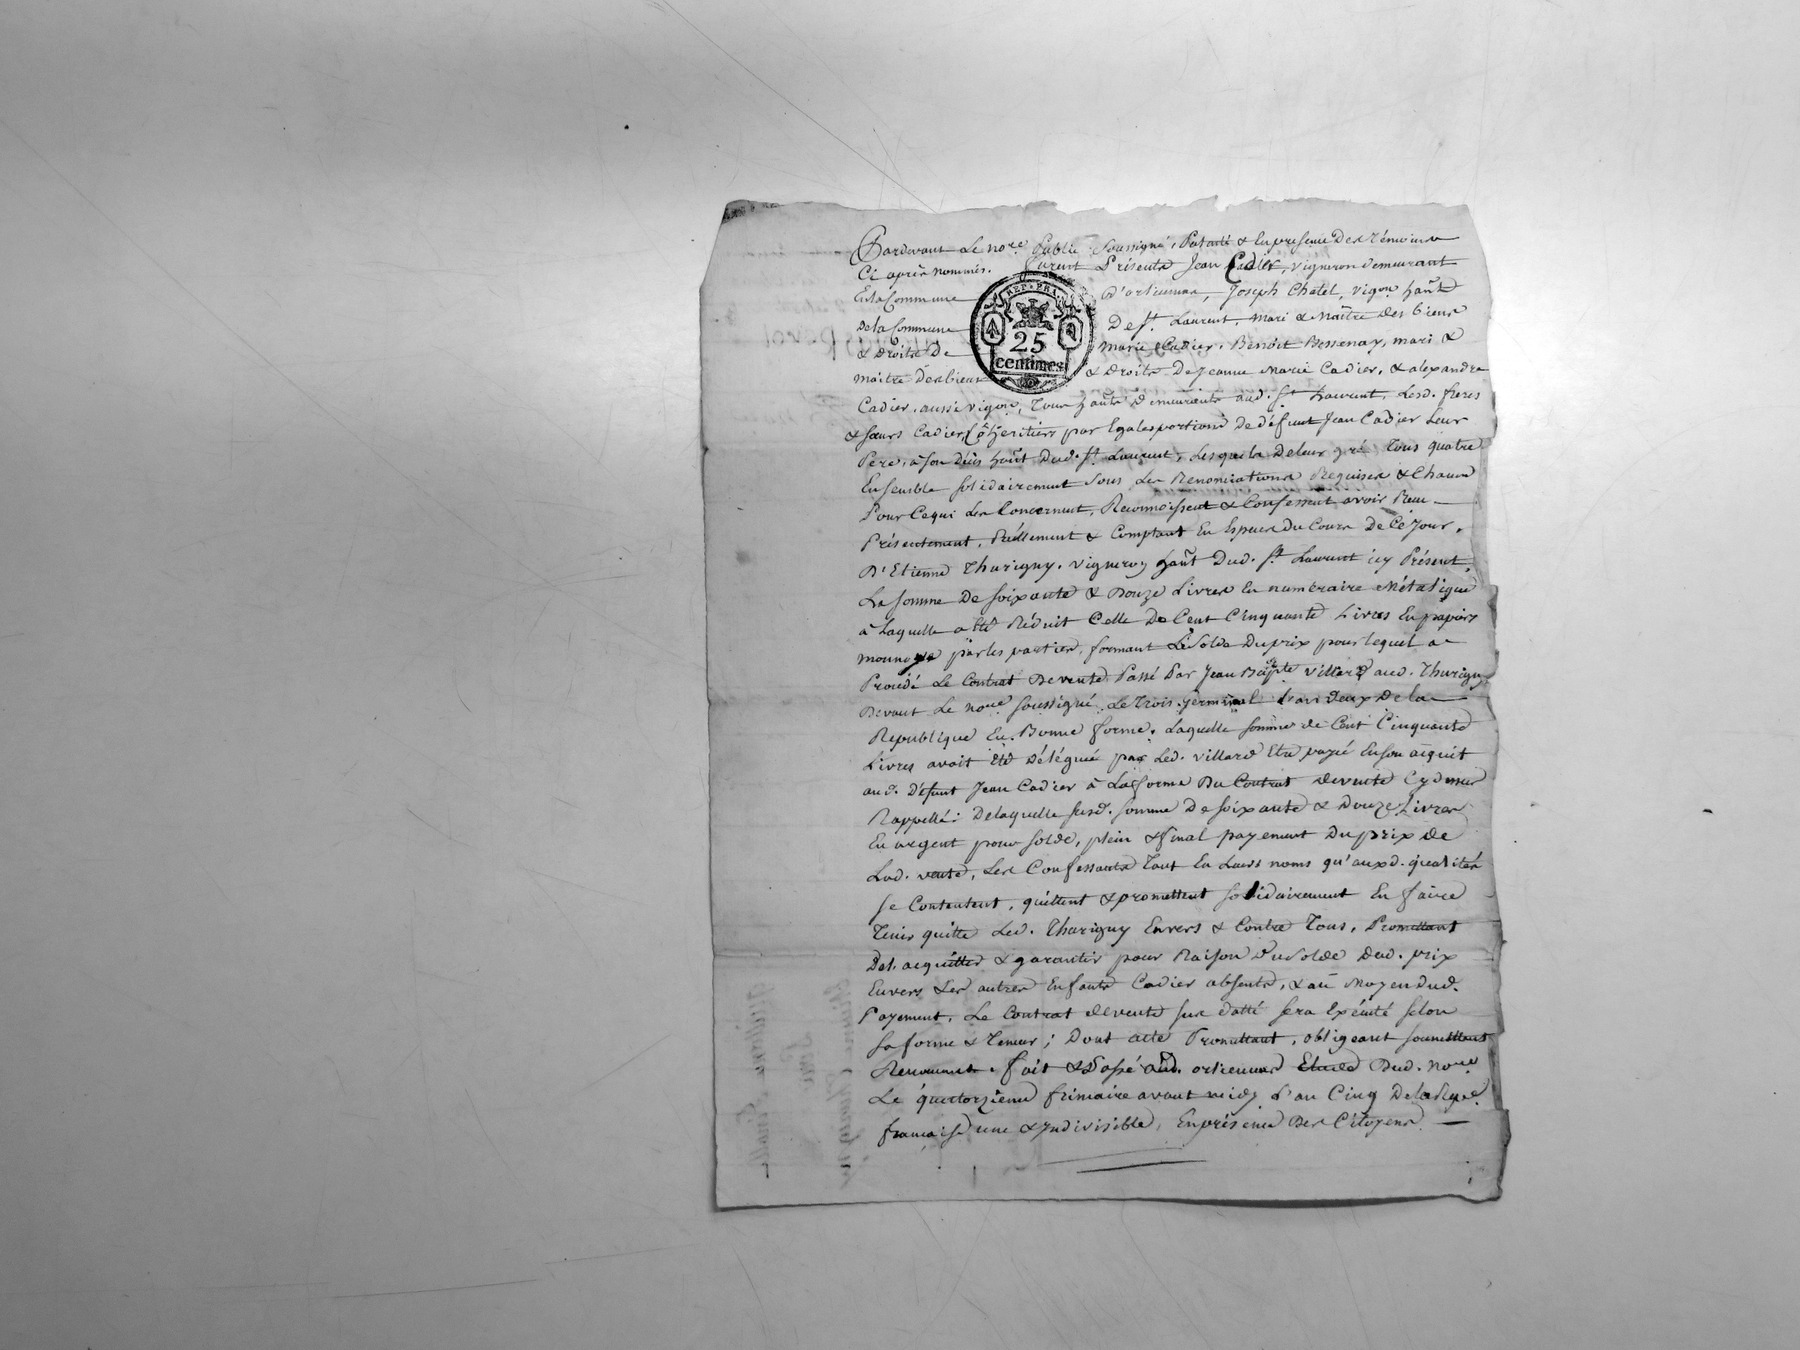 Pardevant Le no.re Public Soussigné, Patanté & En presence Des Témoins
Ci après nommés. Furent Présents Jean Cadier, vigneron demeurant
En la Commune d'orliennas, Joseph Chatel, vigon. hãnt
De la Commune De St. Laurent, mari & maître des biens
& droits De marie Cadier, Benoît Bessenay, mari &
maître des biens & droits De jeanne Marie Cadier, & aléxandre
Cadier, aussi vigon, Tous hãnts & demeurants aud. St. Laurent, Lesd. freres
& sœurs Cadier, Cohéritiers par Egales portions de défunt Jean Cadier Leur
Pere, à son décès hãnt Dud. St. Laurent, Lesquels de leur gré Tous quatre
Ensemble solidairement sous Les Renonciations Requises & Chacun
Pour Ce qui Les Concernent, Reconnoissent & Confessent avoir Reçu
Présentement, Réellement & Comptant En Espèces Du Cours De Ce Jour,
D'Etienne Thurigny, vigneron hãnt Dud. St. Laurent icy Présent,
La somme De soixante & Douze Livres En numéraire Métalique
à Laquelle a été Réduit Celle De Cent Cinquante Livres En papiers
monnoye par les parties, formant Le solde Du prix pour lequel a
Procédé Le Contrat De vente Passé Par Jean Bapte. villard aud. Thurigny
Devant Le no.re soussigné, Le Trois germinal L'an deux De la
Republique En Bonne forme, Laquelle somme de Cent Cinquante
Livres avoit été déléguée par Led. villard Etre payée En son acquit
aud. défunt Jean Cadier à La forme Du Contrat de vente Cy dessus
Rappellé: De laquelle susd. somme De soixante & Douze Livres
En argent pour solde, plein & final payement Du prix de
Lad. vente, Les Confessants Tant En Leurs noms qu'auxd. qualités
se Contentent, quittent & promettent solidairement En faire
Tenir quitte Led. Thurigny Envers & Contre Tous, Promettant
De l'acquitter & garantir pour Raison du solde Dud. prix
Envers Les autres Enfants Cadier absents, & au Moyen Dud.
Payement, Le Contrat de vente sus datté sera Exécuté selon
sa forme & Teneur; Dont acte Promettant, obligeant soumettant
Renonçant. Fait & Passé aud. orliennas Etude Dud. no.re
Le quatorzième frimaire avant midy L'an Cinq De la Rque.
française une & Indivisible, En présence Des Citoyens
REP. FRA.
25
centimes